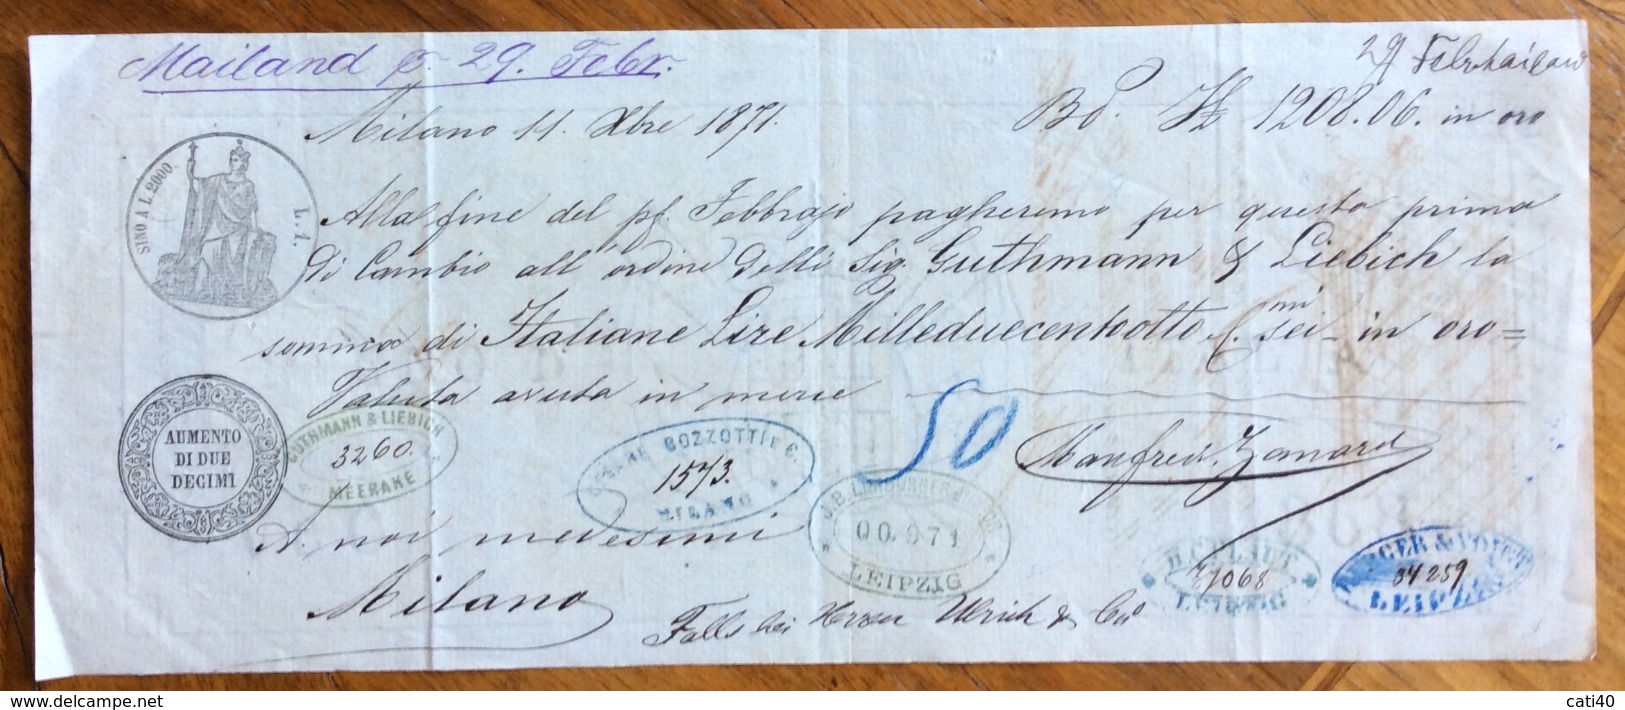 Mailand p. 29. Febr.
29 Febr Mailand
Milano 11. Xbre 1871.
Bº. It£ 1208.06. in oro
SINO A L. 2000
L. 1.
Alla fine del pf. Febbrajo pagheremo per questa prima
di Cambio all ordine delli Sig. Guthmann & Liebich la
somma di Italiane Lire Milleduecentootto C.mi sei in oro =
Valuta avuta in merce
50
AUMENTO
DI DUE
DECIMI
GUTHMANN & LIEBICH
3260.
MEERANE
BOZZOTTI E C.
1573.
MILANO
Manfredi. Zamara
A noi medesimi
00.971
LEIPZIG
H. C. PLAUT
LEIPZIG
34259
LEIPZIG
Milano
Falls bei Herren Ulrich & Co
cati40